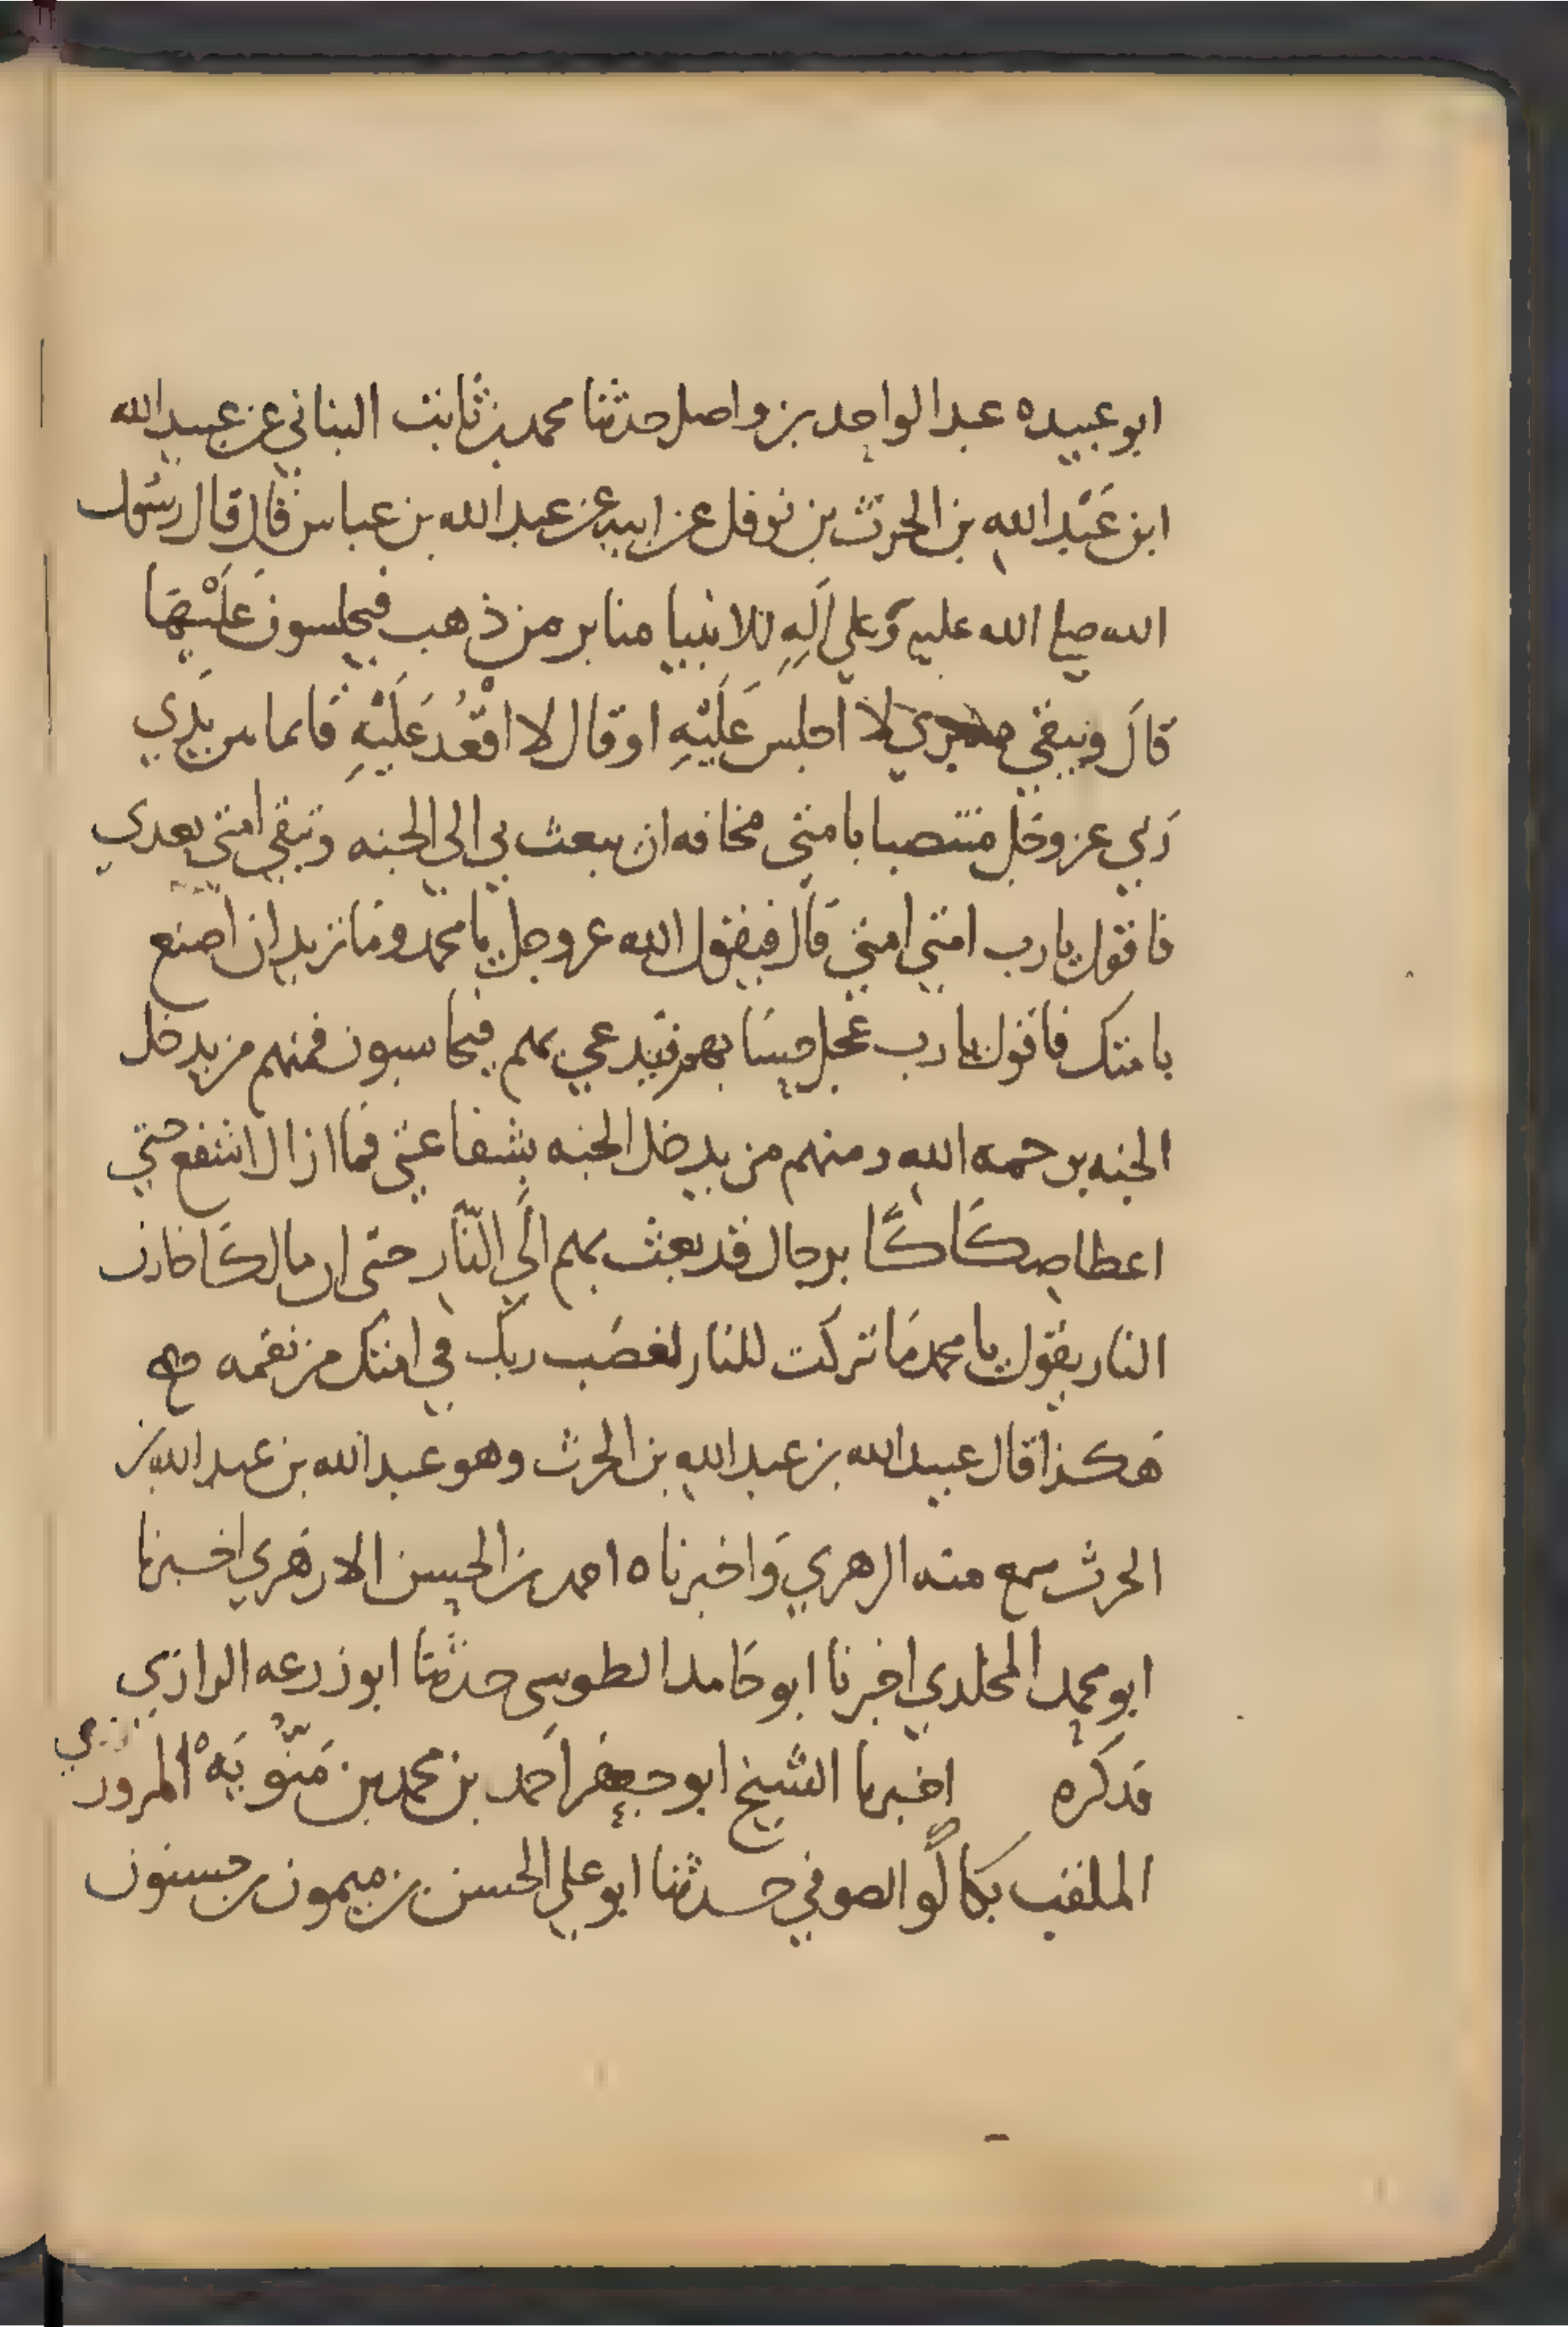 ابو عبيده عبد الواحد بن واصل حدثنا محمد بن ثابت البناني عن عبيد الله
ابن عَبْد الله بن الحرث بن نوفل عن ابيه عن عبد الله بن عباس قال قال رسول
الله صلى الله عليه وَعلى آلِهِ للانبيا منابر من ذهب فيجلسون عَلَيْهَا
قالَ ويبقى منبري لا اجلس عَلَيْهِ او قال لا اقْعُد عَلَيْهِ قائما بين يَدَي
رَبي عز وجل منتصبا بامتي مخافه ان يبعث بي الى الجنه وتبقى امتي بعدي
فاقول يا رب امتي امتي قالَ فيقول الله عز وجل يا محمد ومَا تريد ان اصنع
بامتك فاقول يا رب عجل حسَابهم فيدعى بهم فيحاسبون فمنهم من يدخل
الجنه برحمه الله ومنهم من يدخل الجنه بشفاعتي فما ازال اشفع حتى
اعطا صكَاكًا برجال قد بعث بهم الَى النَّار حتى ان مالكَا خازن
النار يقول يا محمد مَا تركت للنار لغضَب ربك في امتك من نقمه صح
هَكذا قال عبيد الله بن عبد الله بن الحرث وهو عبد الله بن عبد الله بن
الحرث سمع منه الزهري وَاخبرناه احمد بن الحسن الازهري اخبرنا
ابو محمد المخلدي اخبرنا ابو حَامد الطوسي حدثنا ابو زرعه الرازي
فذكَره اخبرنا الشيخ ابو جعفر احمد بن محمد بن مَنُّويَهْ المرورذي
الملقب بكالُو الصوفي حدثنا ابو علي الحسن بن ميمون بن حسنون